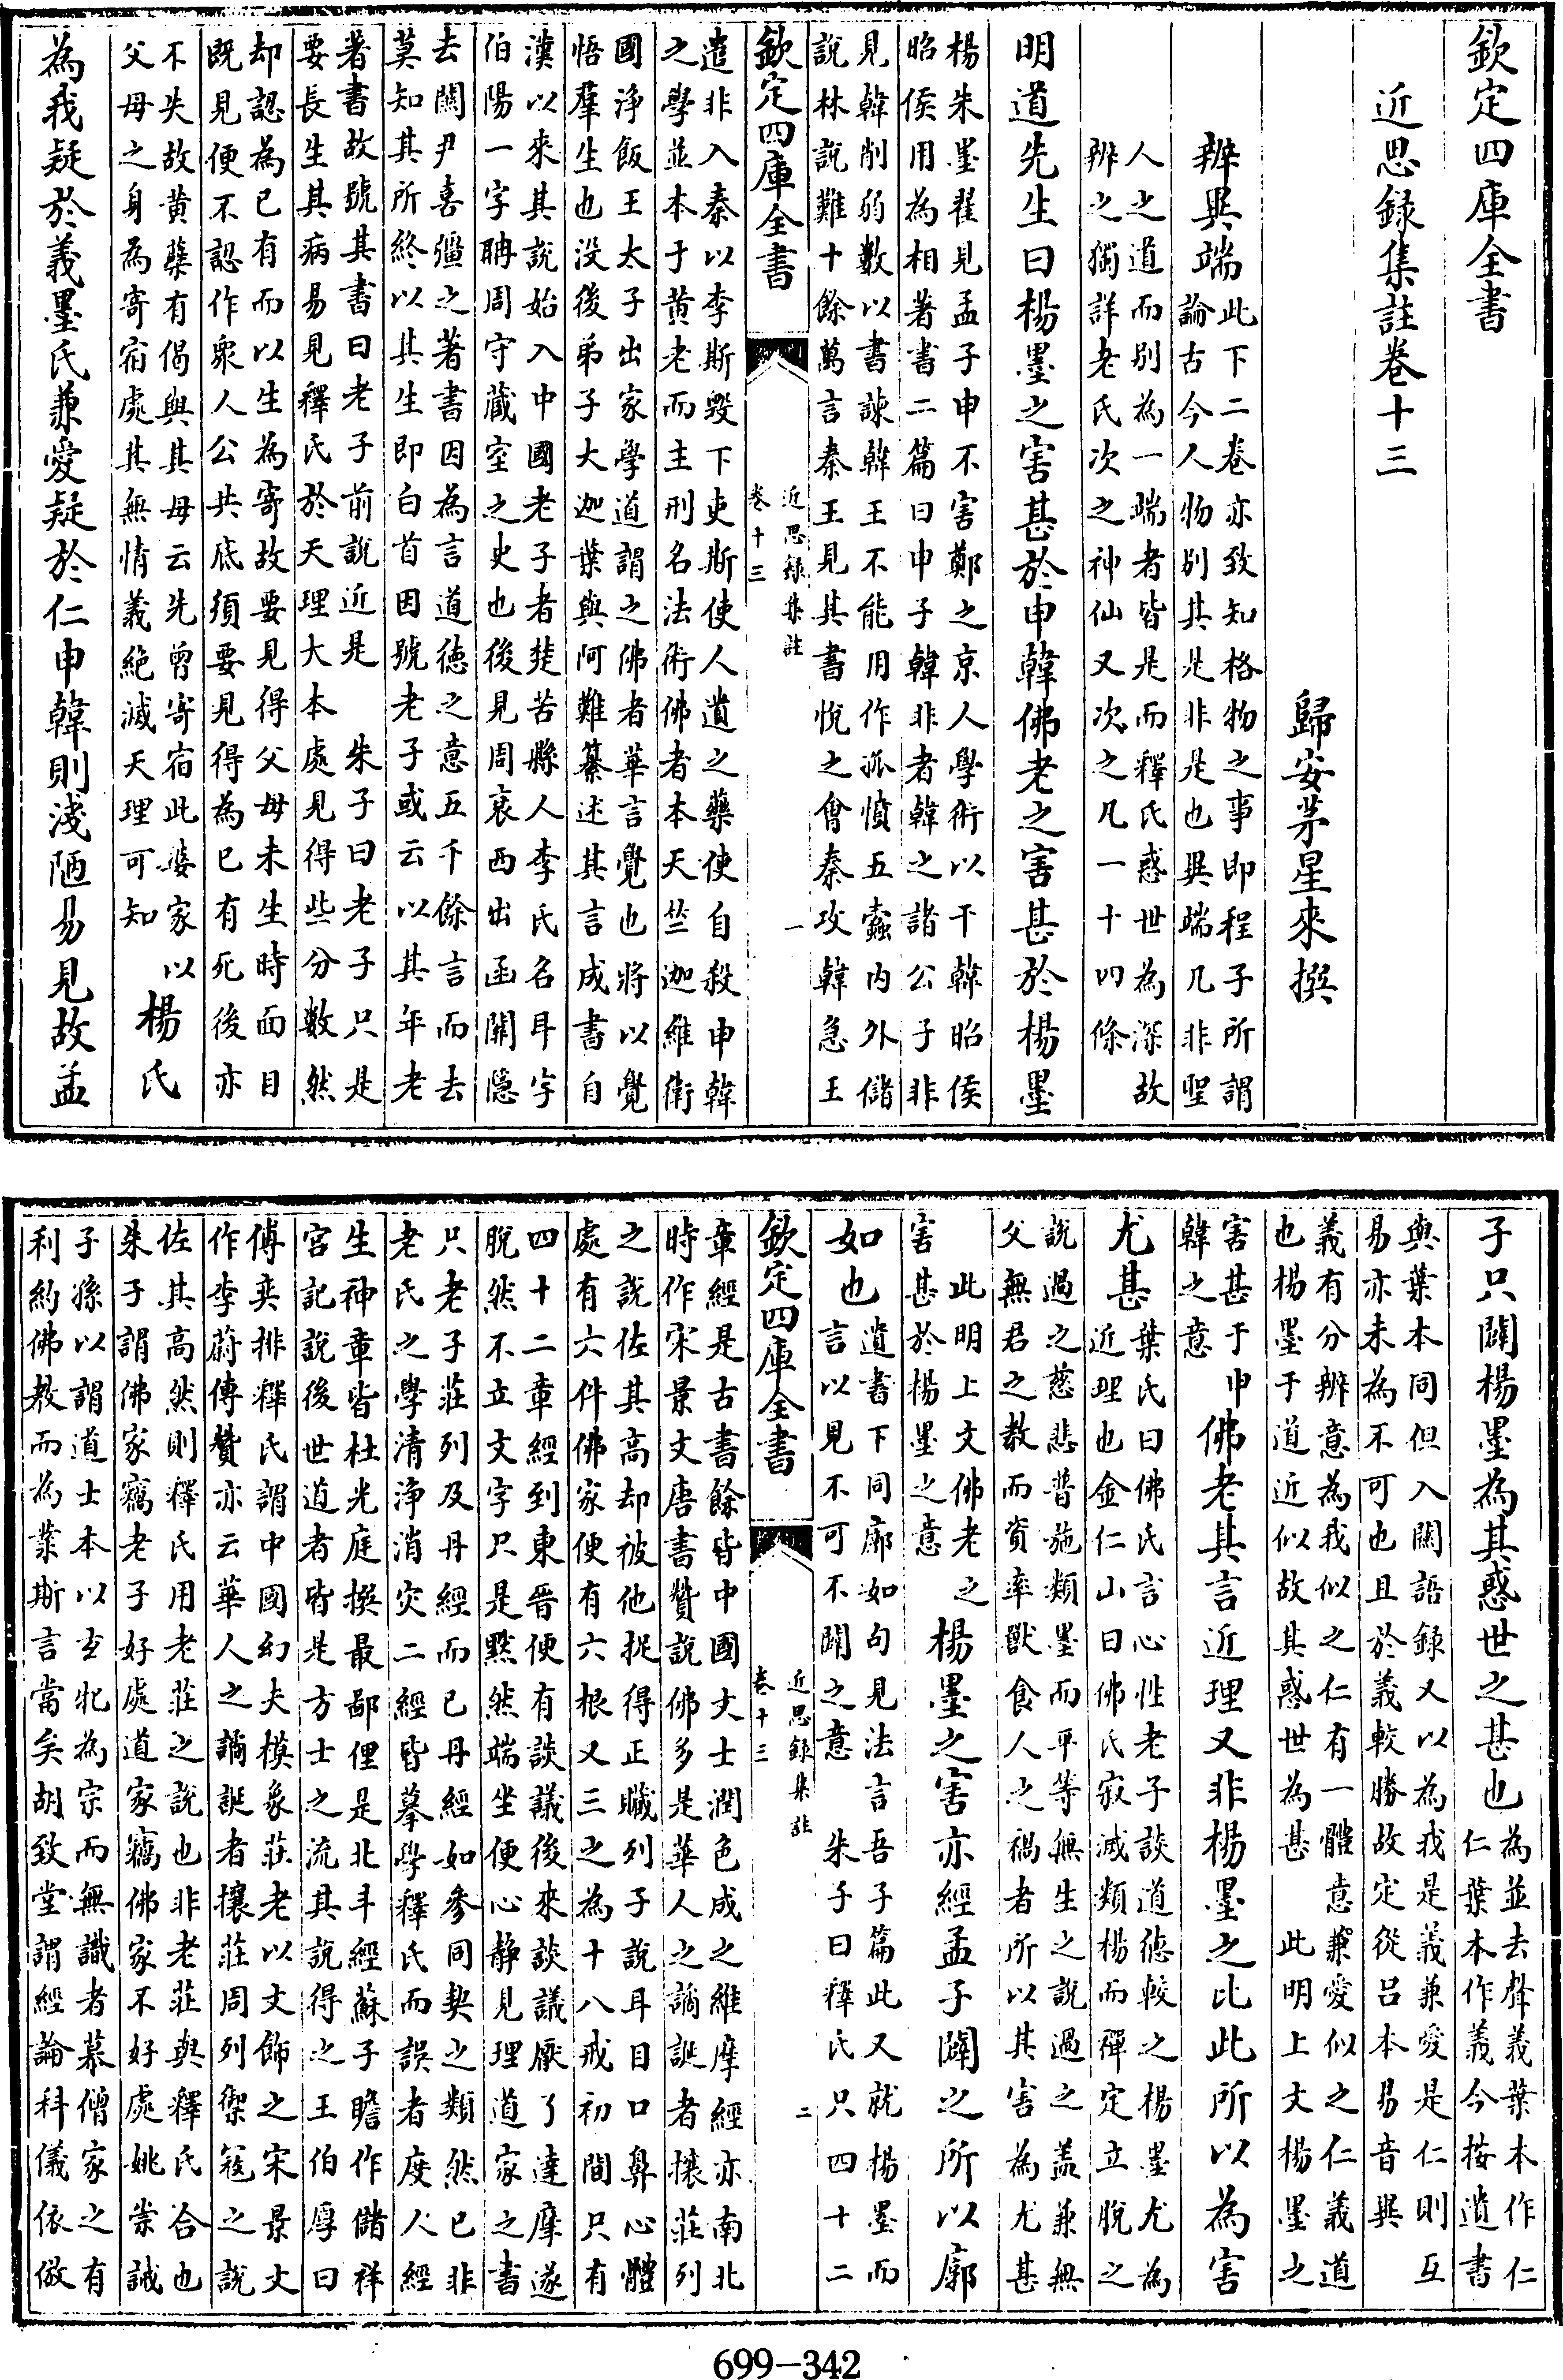 欽定四庫全書
近思録集註卷十三
歸安茅星來撰
辨異端
此下二卷亦致知格物之事即程子所謂
論古今人物别其是非是也異端凡非聖
人之道而别為一端者皆是而釋氏惑世為深故
辨之獨詳老氏次之神仙又次之凡一十四條
明道先生曰楊墨之害甚於申韓佛老之害甚於楊墨
楊朱墨翟見孟子申不害鄭之京人學術以干韓昭侯
昭侯用為相著書二篇曰申子韓非者韓之諸公子非
見韓削弱數以書諫韓王不能用作孤憤五蠹内外儲
說林說難十餘萬言秦王見其書悅之會秦攻韓急王
欽定四庫全書
近思録集註
卷十三
一
遣非入秦以李斯毀下吏斯使人遺之藥使自殺申韓
之學並本于黄老而主刑名法術佛者本天竺迦維衛
國浄飯王太子出家學道謂之佛者華言覺也將以覺
悟羣生也没後弟子大迦葉與阿難纂述其言成書自
漢以來其說始入中國老子者楚苦縣人李氏名耳字
伯陽一字聃周守藏室之史也後見周衰西出函關隱
去關尹喜彊之著書因為言道德之意五千餘言而去
莫知其所終以其生即白首因號老子或云以其年老
著書故號其書曰老子前說近是 朱子曰老子只是
要長生其病易見釋氏於天理大本處見得些分數然
却認為已有而以生為寄故要見得父母未生時面目
既見便不認作衆人公共底須要見得為已有死後亦
不失故黄蘗有偈與其母云先曾寄宿此婆家以
父母之身為寄宿處其無情義絶滅天理可知
楊氏
為我疑於義墨氏兼愛疑於仁申韓則淺陋易見故孟
子只闢楊墨為其惑世之甚也
為並去聲義葉本作仁
仁葉本作義今按遺書
與葉本同但入關語録又以為我是義兼愛是仁則互
易亦未為不可也且於義較勝故定從吕本易音異
義有分辨意為我似之仁有一體意兼愛似之仁義道
也楊墨于道近似故其惑世為甚 此明上文楊墨之
害甚于申
韓之意
佛老其言近理又非楊墨之比此所以為害
尤甚
葉氏曰佛氏言心性老子談道德較之楊墨尤為
近理也金仁山曰佛氏寂滅類楊而禪定立脫之
說過之慈悲普施類墨而平等無生之說過之蓋兼無
父無君之教而資率獸食人之禍者所以其害為尤甚
此明上文佛老之
害甚於楊墨之意
楊墨之害亦經孟子闢之所以廓
如也
遺書下同廓如句見法言吾子篇此又就楊墨而
言以見不可不闢之意 朱子曰釋氏只四十二
欽定四庫全書
近思録集註
卷十三
二
章經是古書餘皆中國文士潤色成之維摩經亦南北
時作宋景文唐書贊說佛多是華人之譎誕者攘莊列
之說佐其高却被他捉得正贓列子說耳目口鼻心體
處有六件佛家便有六根又三之為十八戒初間只有
四十二章經到東晉便有談議後來談議厭了達摩遂
脫然不立文字只是黙然端坐便心静見理道家之書
只老子莊列及丹經而已丹經如參同契之類然已非
老氏之學清浄消災二經皆摹學釋氏而誤者度人經
生神章皆杜光庭撰最鄙俚是北斗經蘇子瞻作儲祥
宫記說後世道者皆是方士之流其說得之王伯厚曰
傅奕排釋氏謂中國幻夫模象莊老以文飾之宋景文
作李蔚傳贊亦云華人之譎誕者攘莊周列禦冦之說
佐其高然則釋氏用老莊之說也非老莊與釋氏合也
朱子謂佛家竊老子好處道家竊佛家不好處姚崇誡
子孫以謂道士本以玄牝為宗而無識者慕僧家之有
利約佛教而為業斯言當矣胡致堂謂經論科儀依倣
699-342